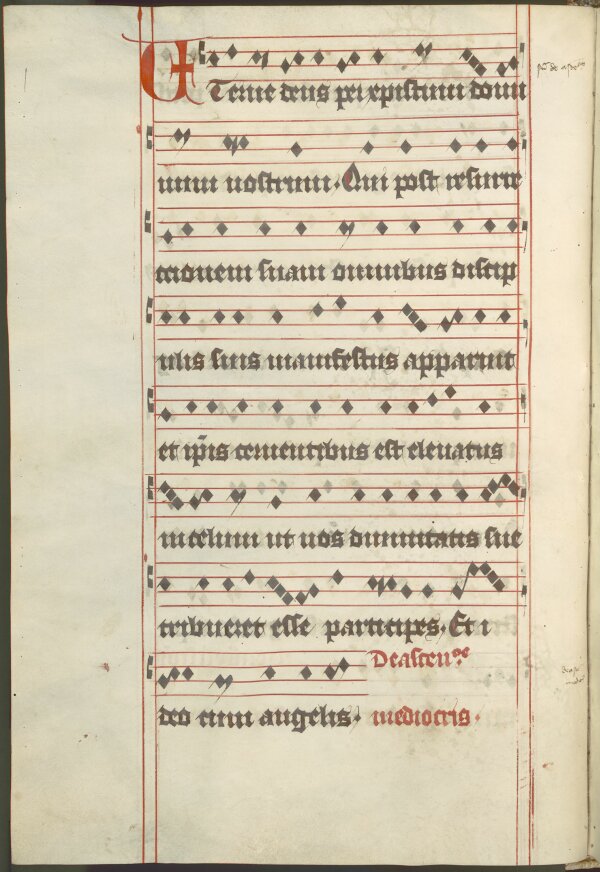 ETerne deus per xpistum domi
num nostrum. Qui post resurre
ctionem suam omnibus discip
ulis suis manifestus apparuit
et ip̄is cernentibus est eleuatus
in celum ut nos diuinitatis sue
tribueret esse participes. Et i
De ascen⁹ne
deo cum angelis. mediocris.